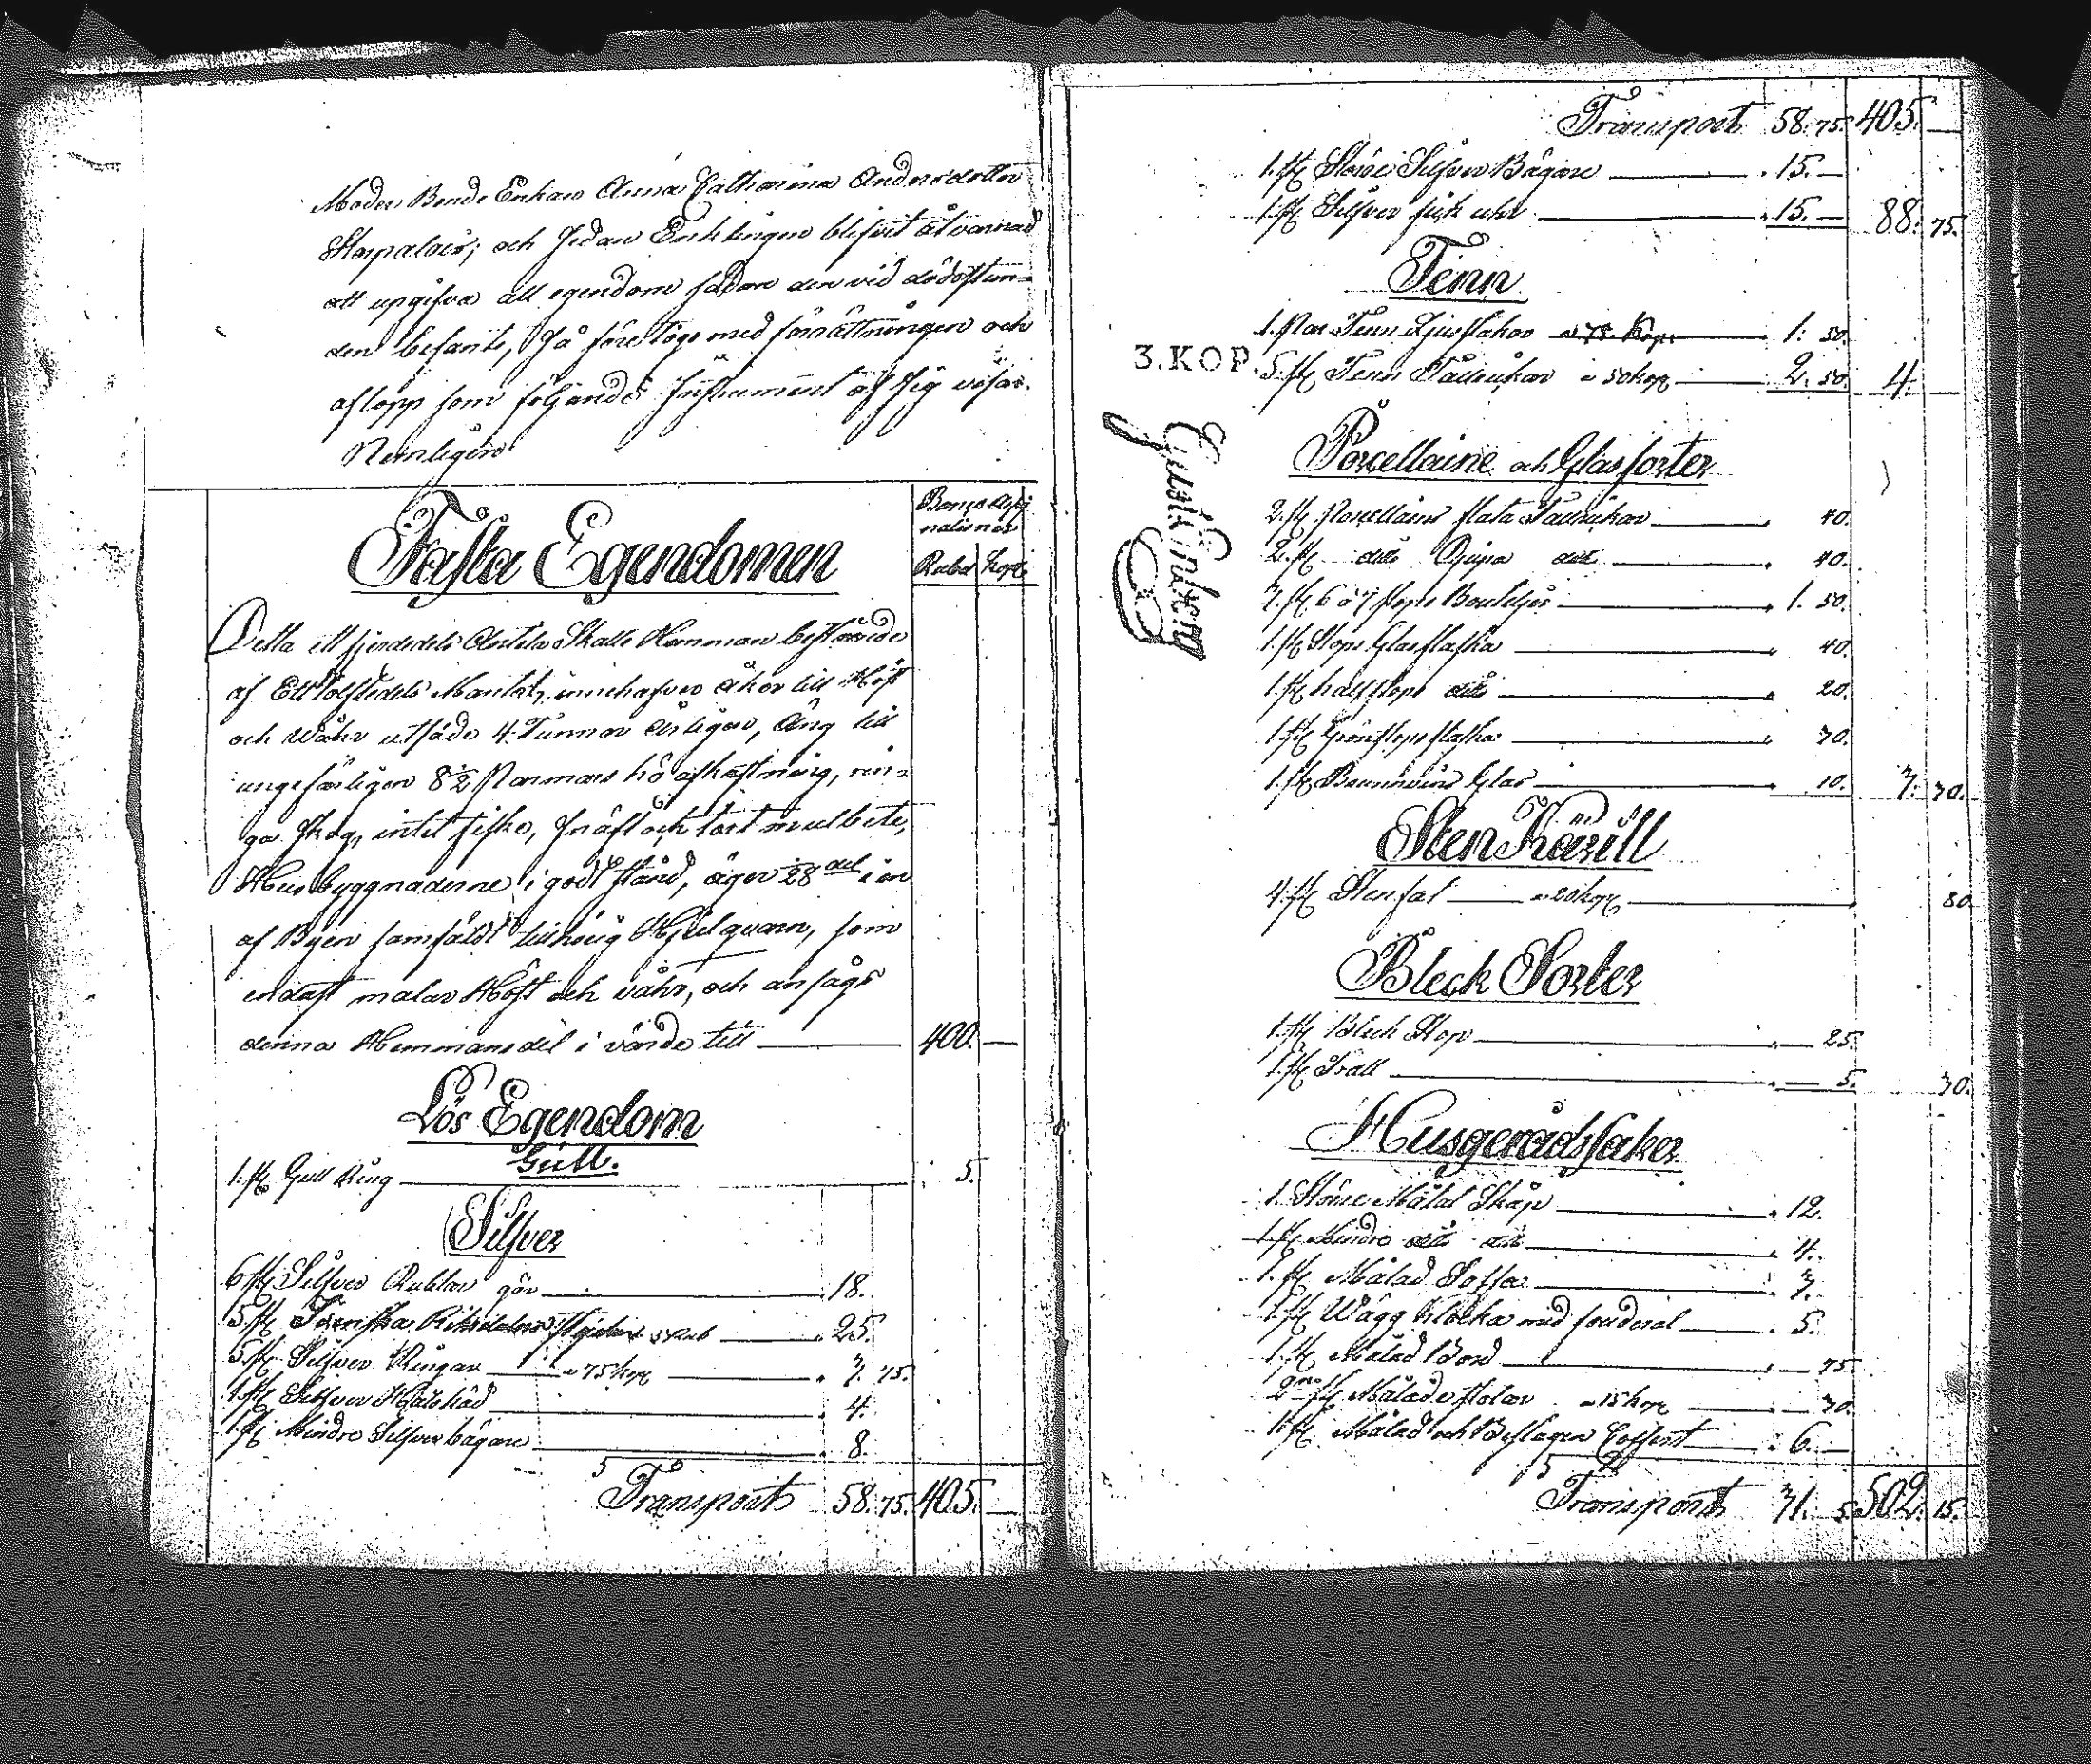 Moder Bonde Enkan Anna Catharina Andersdotter
Storpalois; och sedan Enklingen blifvit åtvarnad
att upgifva all egendom sådan den vid dödsstun-
den befants, så företogs med förrättningen och
aflopp som följande Instrument af sig visar.
Nemligen
Banco Assig
nationer
Rubel Kop:
Fasta Egendomen
Detta ett fjerdedels Antila Skatte Hemman bestående
af Ett tolftedels Mantal, innehafver åker till Höst
och Währ utsäde 4 Tunnor årligen, Äng till
ungefärligen 8½ Parmars hö afkastning, rin-
ga skog, intet fiske, knäft och torrt mulbete,
Husbyggnaderne i godt stånd, äger 28 del i en
af Byen samfäldt tillhörig Hjulquarn, som
endast malar Höst och våhr, och ansågs
denna Hemmansdel i värde till 400. —
Lös Egendom
Gull.
1. st Gull Ring 5.
Silfver
6 st Silfver Rublar gör 18.
5. st Svenska Riksdaler stycket 5 Rub 25.
5. st Silfver Ringar a 75 kop 3. 75.
1. st Silfver Halskäd 4.
1. st Mindre Silfver bägare 8.
Transport 58. 75. 405. —
Transport 58. 75. 405. —
1. st Större Silfver Bägare 15. —
1. st Silfver fick uhr 15. — 88. 75.
Tenn
1. Par Tenn Ljusstakor a 75. Kop: 1. 50.
3.KOP. 5. st Tenn Tallrickar a 50 kop 2. 50. 4. —
Porcellaine och Glassorter
2. st Porcellains flata Tallrickar 40.
2. st ditto Djupa dito 40.
3. st 6 a 7 stops Bouteljer 1. 50.
1. st Stops Glasflaska 40.
1. st half stops dito 20.
1. st Grön stops flaska 70.
1. st Brännvins Glas 10. 3. 70.
Sten Kärill
4. st Stenfat a 20 kop 80.
Bleck Sorter
1. st Bleck Stop 25.
1. st Tratt 5. 30.
Husgerådssaker
1. Större Målat Skåp 12.
1. st Mindre dito dito 4.
1. st Målad Soffa 3.
1. st Wägg Klocka med fouderal 5.
1. st Målad Bord 75.
2 st Målade stolar a 15 kop 30.
1. st Målad och Beslagen Coffert 6. —
Transport 31. 5. 502. 15.